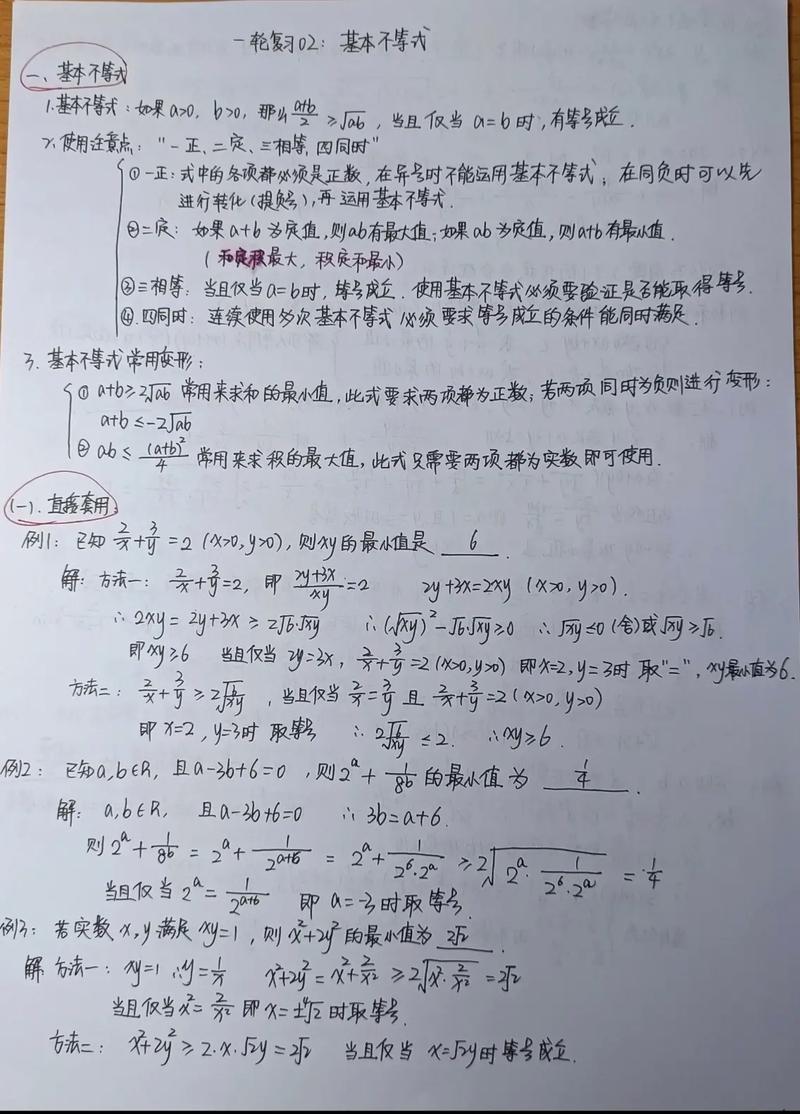 一轮复习02：基本不等式
一、基本不等式
1.基本不等式：如果a>0，b>0，那么(a+b)/2≥√ab，当且仅当a=b时，有等号成立．
2.使用注意点："一正、二定、三相等、四同时"
①一正：式中的各项都必须是正数，在异号时不能运用基本不等式；在同负时可以先
进行转化(提负号)，再运用基本不等式．
②二定：如果a+b为定值，则ab有最大值；如果ab为定值，则a+b有最小值．
(和定积最大，积定和最小)
③三相等：当且仅当a=b时，等号成立．使用基本不等式必须要验证是否能取得等号．
④四同时：连续使用多次基本不等式必须要求等号成立的条件能同时满足．
3.基本不等式常用变形：
①a+b≥2√ab 常用来求和的最小值，此式要求两项都为正数；若两项同时为负则进行变形：
a+b≤-2√ab
②ab≤(a+b)²/4 常用来求积的最大值，此式只需要两项都为实数即可使用．
(一)．直接套用：
例1：已知2/x+3/y=2(x>0,y>0)，则xy的最小值是 6 ．
解：方法一：2/x+3/y=2，即(2y+3x)/xy=2 2y+3x=2xy (x>0,y>0)．
∴2xy=2y+3x≥2√6·√xy ∴(√xy)²-√6·√xy≥0 ∴√xy≤0(舍)或√xy≥√6．
即xy≥6 当且仅当2y=3x，2/x+3/y=2(x>0,y>0) 即x=2，y=3时 取"="，xy最小值为6．
方法二：2/x+3/y≥2√(6/xy)，当且仅当2/x=3/y且2/x+3/y=2(x>0,y>0)
即x=2，y=3时 取等号 ∴2√(6/xy)≤2．∴xy≥6．
例2：已知a,b∈R，且a-3b+6=0，则2^a+1/8^b的最小值为 1/4 ．
解：a,b∈R，且a-3b+6=0 ∴3b=a+6．
则2^a+1/8^b=2^a+1/2^(a+6)=2^a+1/(2^6·2^a)≥2√(2^a·1/(2^6·2^a))=1/4
当且仅当2^a=1/2^(a+6) 即a=-3时取等号．
例3：若实数x,y满足xy=1，则x²+2y²的最小值为 2√2 ．
解：方法一：xy=1 ∴y=1/x x²+2y²=x²+2/x²≥2√(x²·2/x²)=2√2
当且仅当x²=2/x² 即x=±⁴√2时取等号．
方法二：x²+2y²≥2·x·√2y=2√2 当且仅当x=√2y时等号成立．